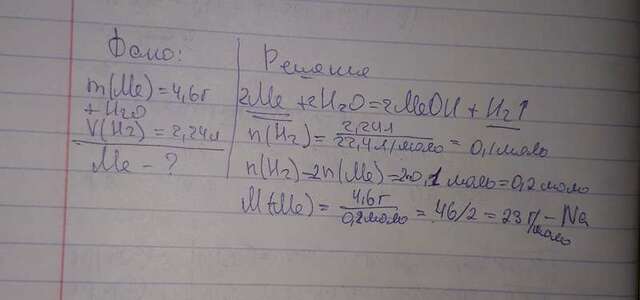 Дано:
m(Me) = 4,6г
+ H2O
V(H2) = 2,24л
Me - ?
Решение
2Me + 2H2O = 2MeOH + H2↑
n(H2) = 2,24л / 22,4 л/моль = 0,1моль
n(H2) - 2n(Me) = 2·0,1 моль = 0,2 моль
M(Me) = 4,6г / 0,2моль = 46/2 = 23 г/моль - Na